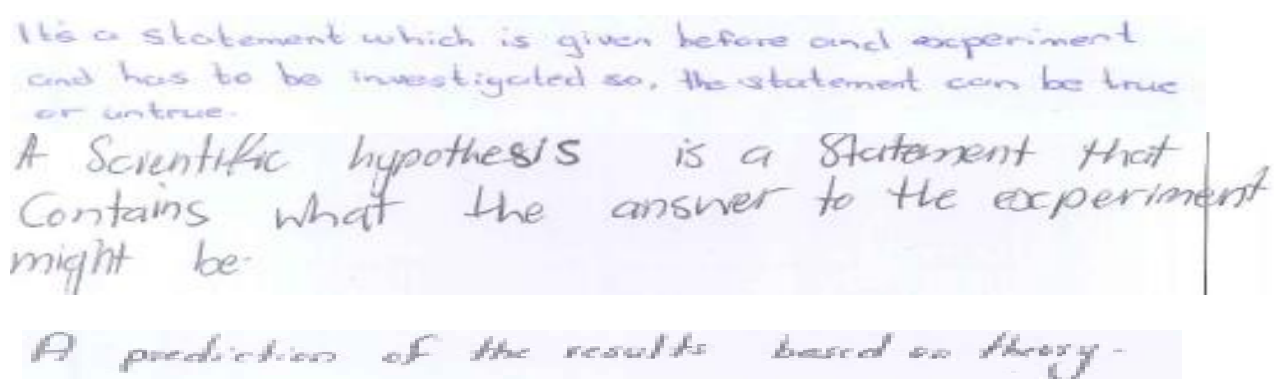 Its a statement which is given before and experiment
and has to be investigated so, the statement can be true
or untrue.
A Scientific hypothesis is a Statement that
Contains what the answer to the experiment
might be.
A prediction of the results based on theory.